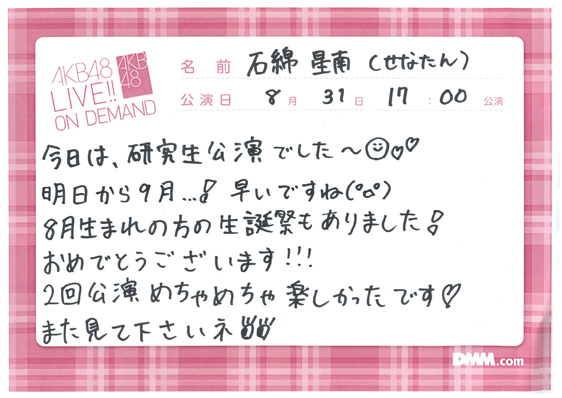 AKB48
LIVE!!
ON DEMAND
AKB
48
名前 石綿 星南 (せなたん)
公演日 8月 31日 17:00 公演
今日は、研究生公演でした〜☺♡♡
明日から9月...! 早いですね(°□°)
8月生まれの方の生誕祭もありました!
おめでとうございます!!!
2回公演めちゃめちゃ楽しかったです♡
また見て下さいネ
DMM.com